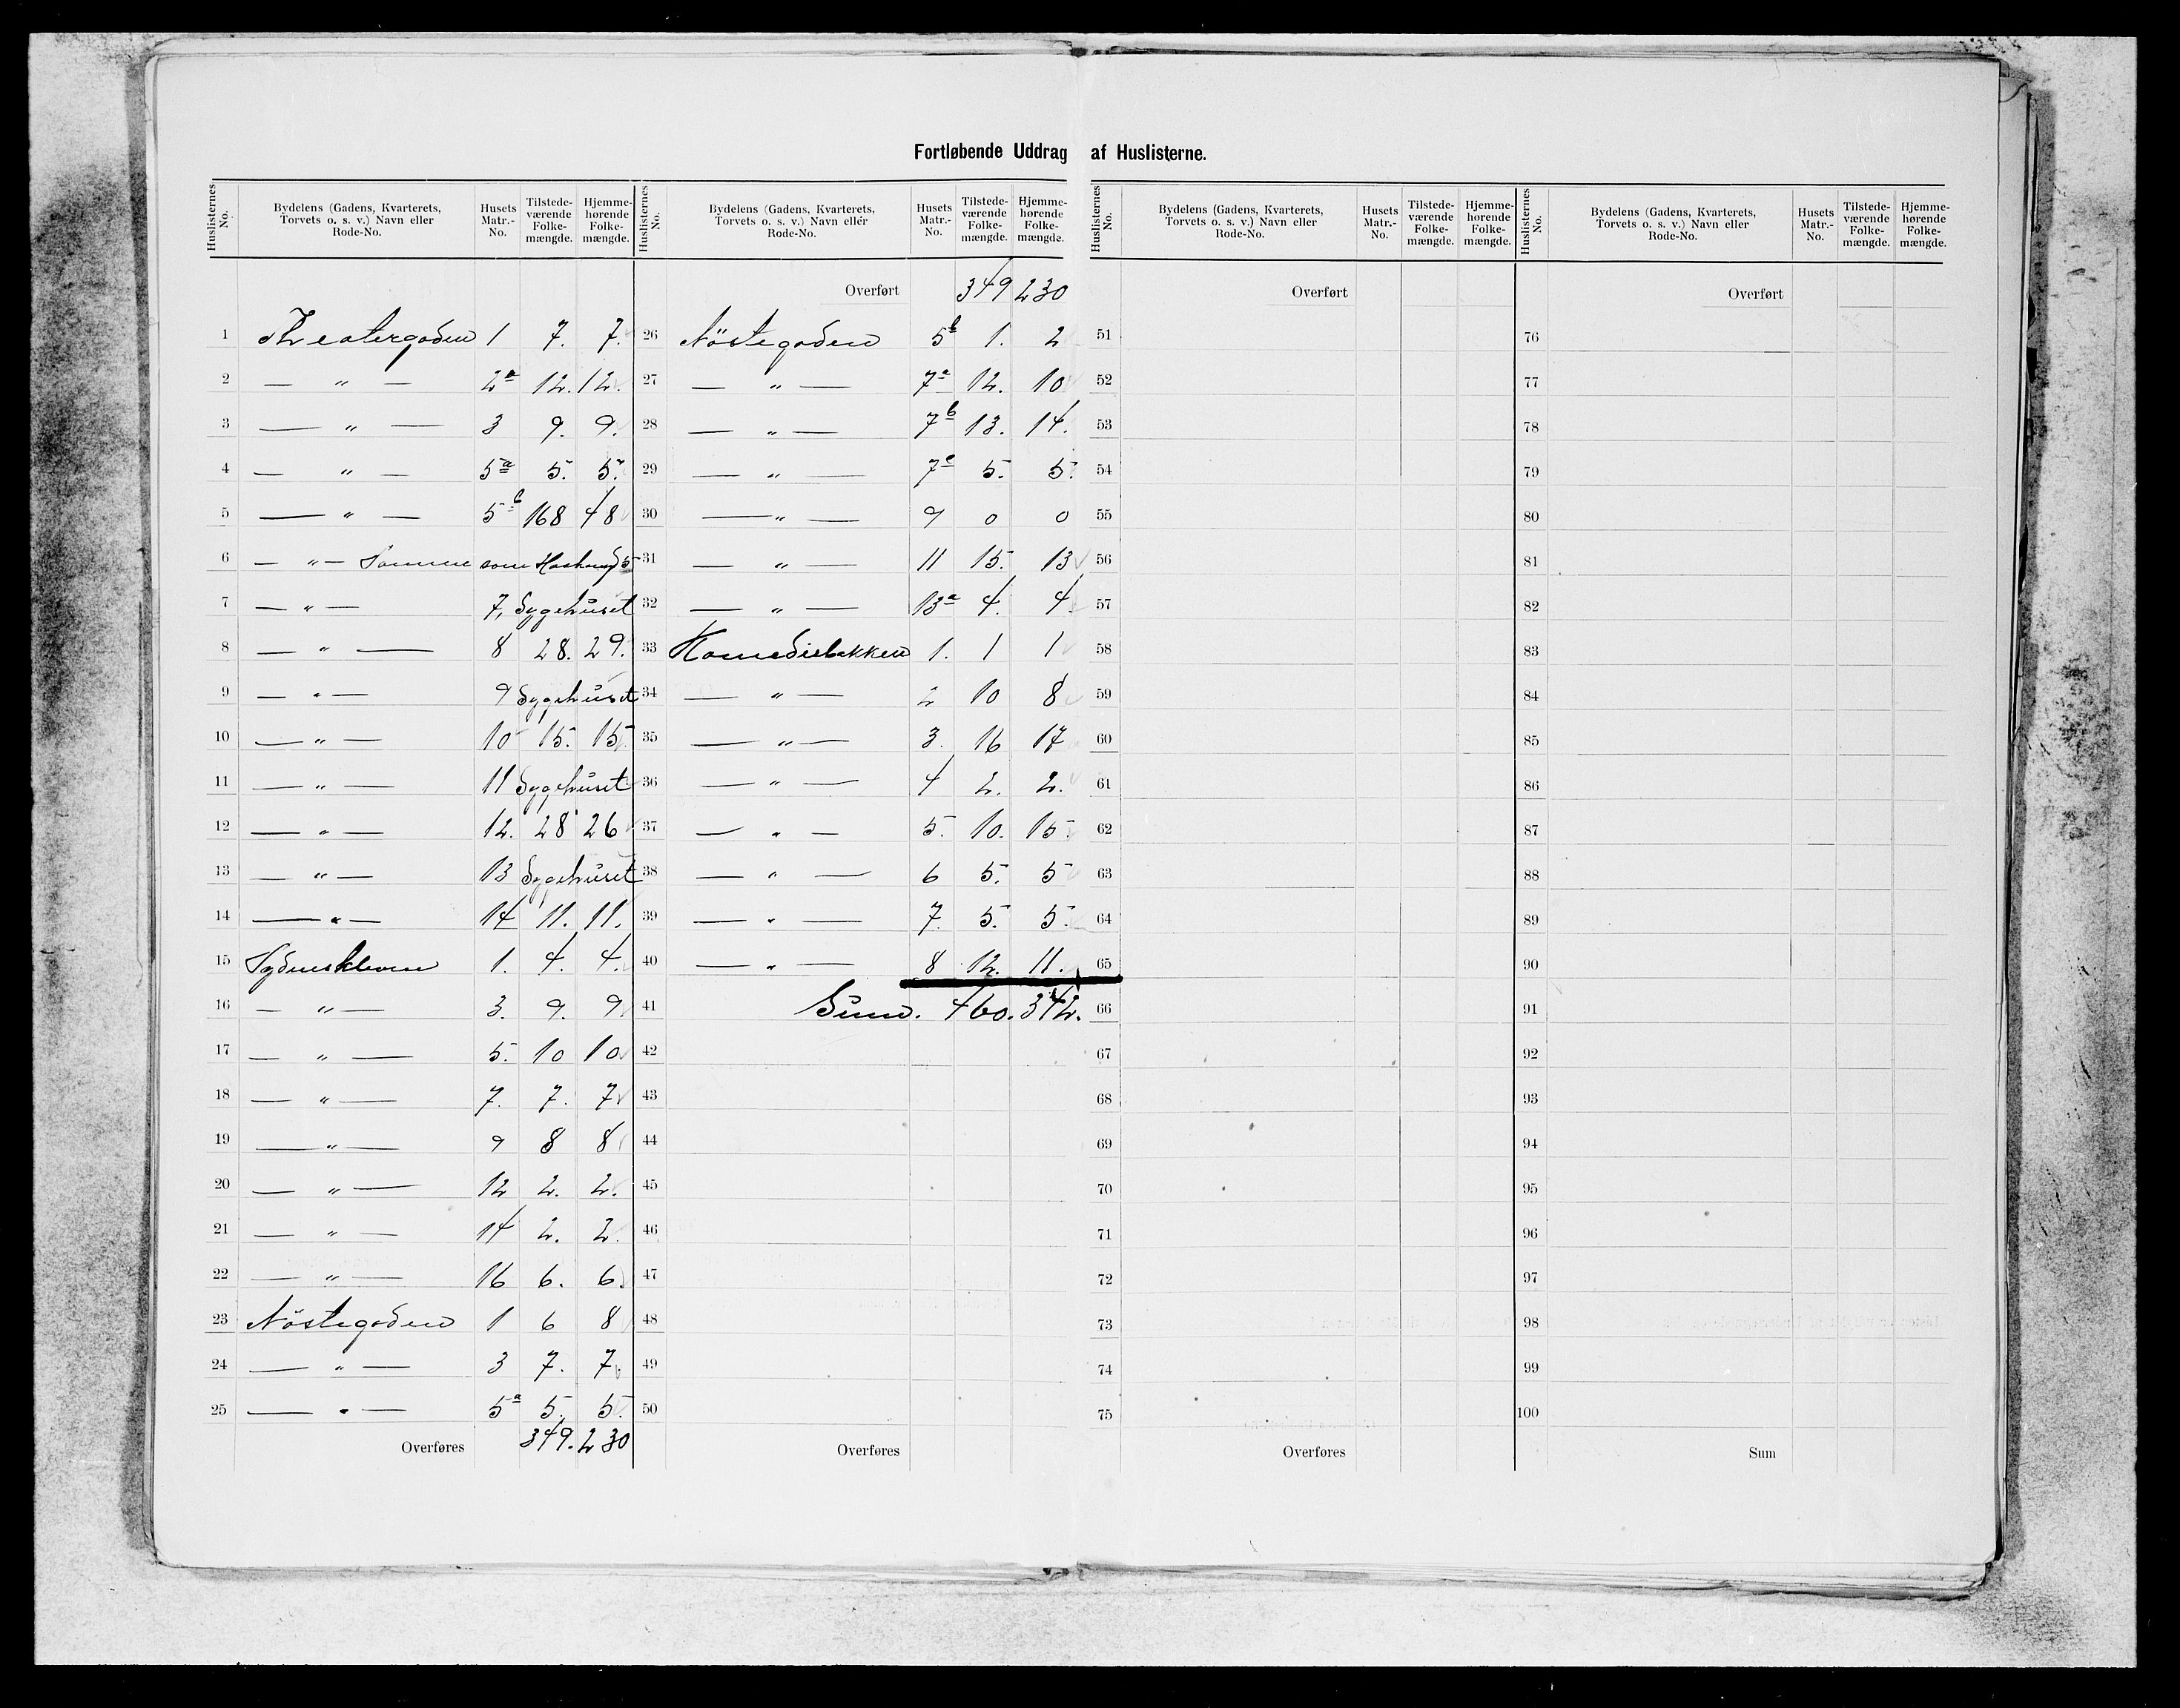 Fortløbende Uddrag af Huslisterne.
Huslisternes No. Bydelens (Gadens, Kvarterets, Torvets o. s. v.) Navn eller Rode-No. Husets Matr.-No. Tilstede-værende Folke-mængde. Hjemme-hørende Folke-mængde.
1 Theatergaden 1 7. 7.
2 — " — 2a 12. 12.
3 — " — 3 9. 9.
4 — " — 5a 5. 5.
5 — " — 5b 168 48
6 — " — Samme som
7 — " — 7, Sygehuset
8 — " — 8 28. 29.
9 — " — 9 Sygehuset
10 — " — 10 15. 15.
11 — " — 11 Sygehuset
12 — " — 12. 28 26
13 — " — 13 Sygehuset
14 — " — 14 11. 11.
15 Sydneskleven 1. 4. 4.
16 — " — 3. 9. 9.
17 — " — 5. 10 10
18 — " — 7. 7. 7
19 — " — 9 8 8
20 — " — 12 2. 2.
21 — " — 14 2. 2.
22 — " — 16 6. 6.
23 Nöstegaden 1 6 8
24 — " — 3 7. 7
25 — " — 5a 5. 5.
Overføres 349. 230
Huslisternes No. Bydelens (Gadens, Kvarterets, Torvets o. s. v.) Navn eller Rode-No. Husets Matr.-No. Tilstede-værende Folke-mængde. Hjemme-hørende Folke-mængde.
Overført 349 230
26 Nöstegaden 5b 1. 2
27 — " — 7a 12. 10
28 — " — 7b 13. 14.
29 — " — 7c 5. 5.
30 — " — 9 0 0
31 — " — 11 15. 13
32 — " — 13a 4. 4.
33 Komediebakken 1. 1 1
34 — " — 2 10 8
35 — " — 3. 16 17
36 — " — 4 2. 2.
37 — " — 5. 10. 15.
38 — " — 6 5. 5
39 — " — 7. 5. 5.
40 — " — 8 12. 11.
41 Sum. 460. 342.
42
43
44
45
46
47
48
49
50
Overføres
Huslisternes No. Bydelens (Gadens, Kvarterets, Torvets o. s. v.) Navn eller Rode-No. Husets Matr.-No. Tilstede-værende Folke-mængde. Hjemme-hørende Folke-mængde.
Overført
51
52
53
54
55
56
57
58
59
60
61
62
63
64
65
66
67
68
69
70
71
72
73
74
75
Overføres
Huslisternes No. Bydelens (Gadens, Kvarterets, Torvets o. s. v.) Navn eller Rode-No. Husets Matr.-No. Tilstede-værende Folke-mængde. Hjemme-hørende Folke-mængde.
Overført
76
77
78
79
80
81
82
83
84
85
86
87
88
89
90
91
92
93
94
95
96
97
98
99
100
Sum